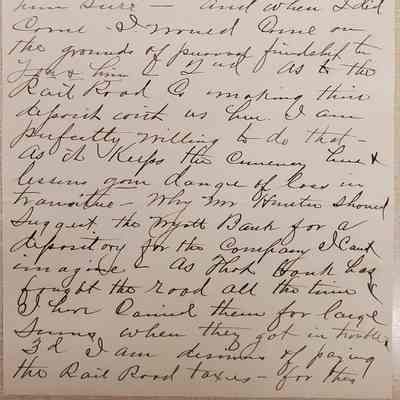 him sure — And when I did
Come I would Come on
the grounds of personal friendship to
You & him & 2nd As to the
Rail Road Co making their
deposit with us here. I am
perfectly willing to do that —
As it keeps the Currency here &
lessens your danger of loss in
transitue — Why Mr Hunter should
Suggest the Wyatt Bank for a
depository for the Company I Cant
imagine — As That Bank has
fought the road all the time &
I have Carried them for large
Sums when they got in trouble
3d I am desirous of paying
the Rail Road taxes — for this